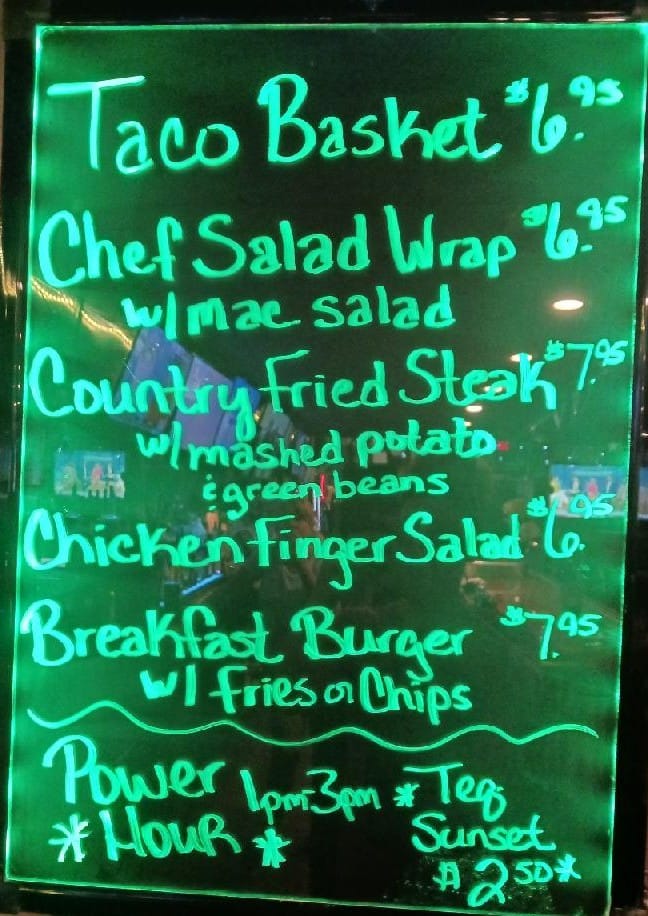 Taco Basket $6.95
Chef Salad Wrap $6.95
w/mac salad
Country Fried Steak $7.95
w/mashed potato
& green beans
Chicken Finger Salad $6.95
Breakfast Burger $7.95
w/ Fries or Chips
Power 1pm-3pm * Teq
* Hour * Sunset
$2.50 *